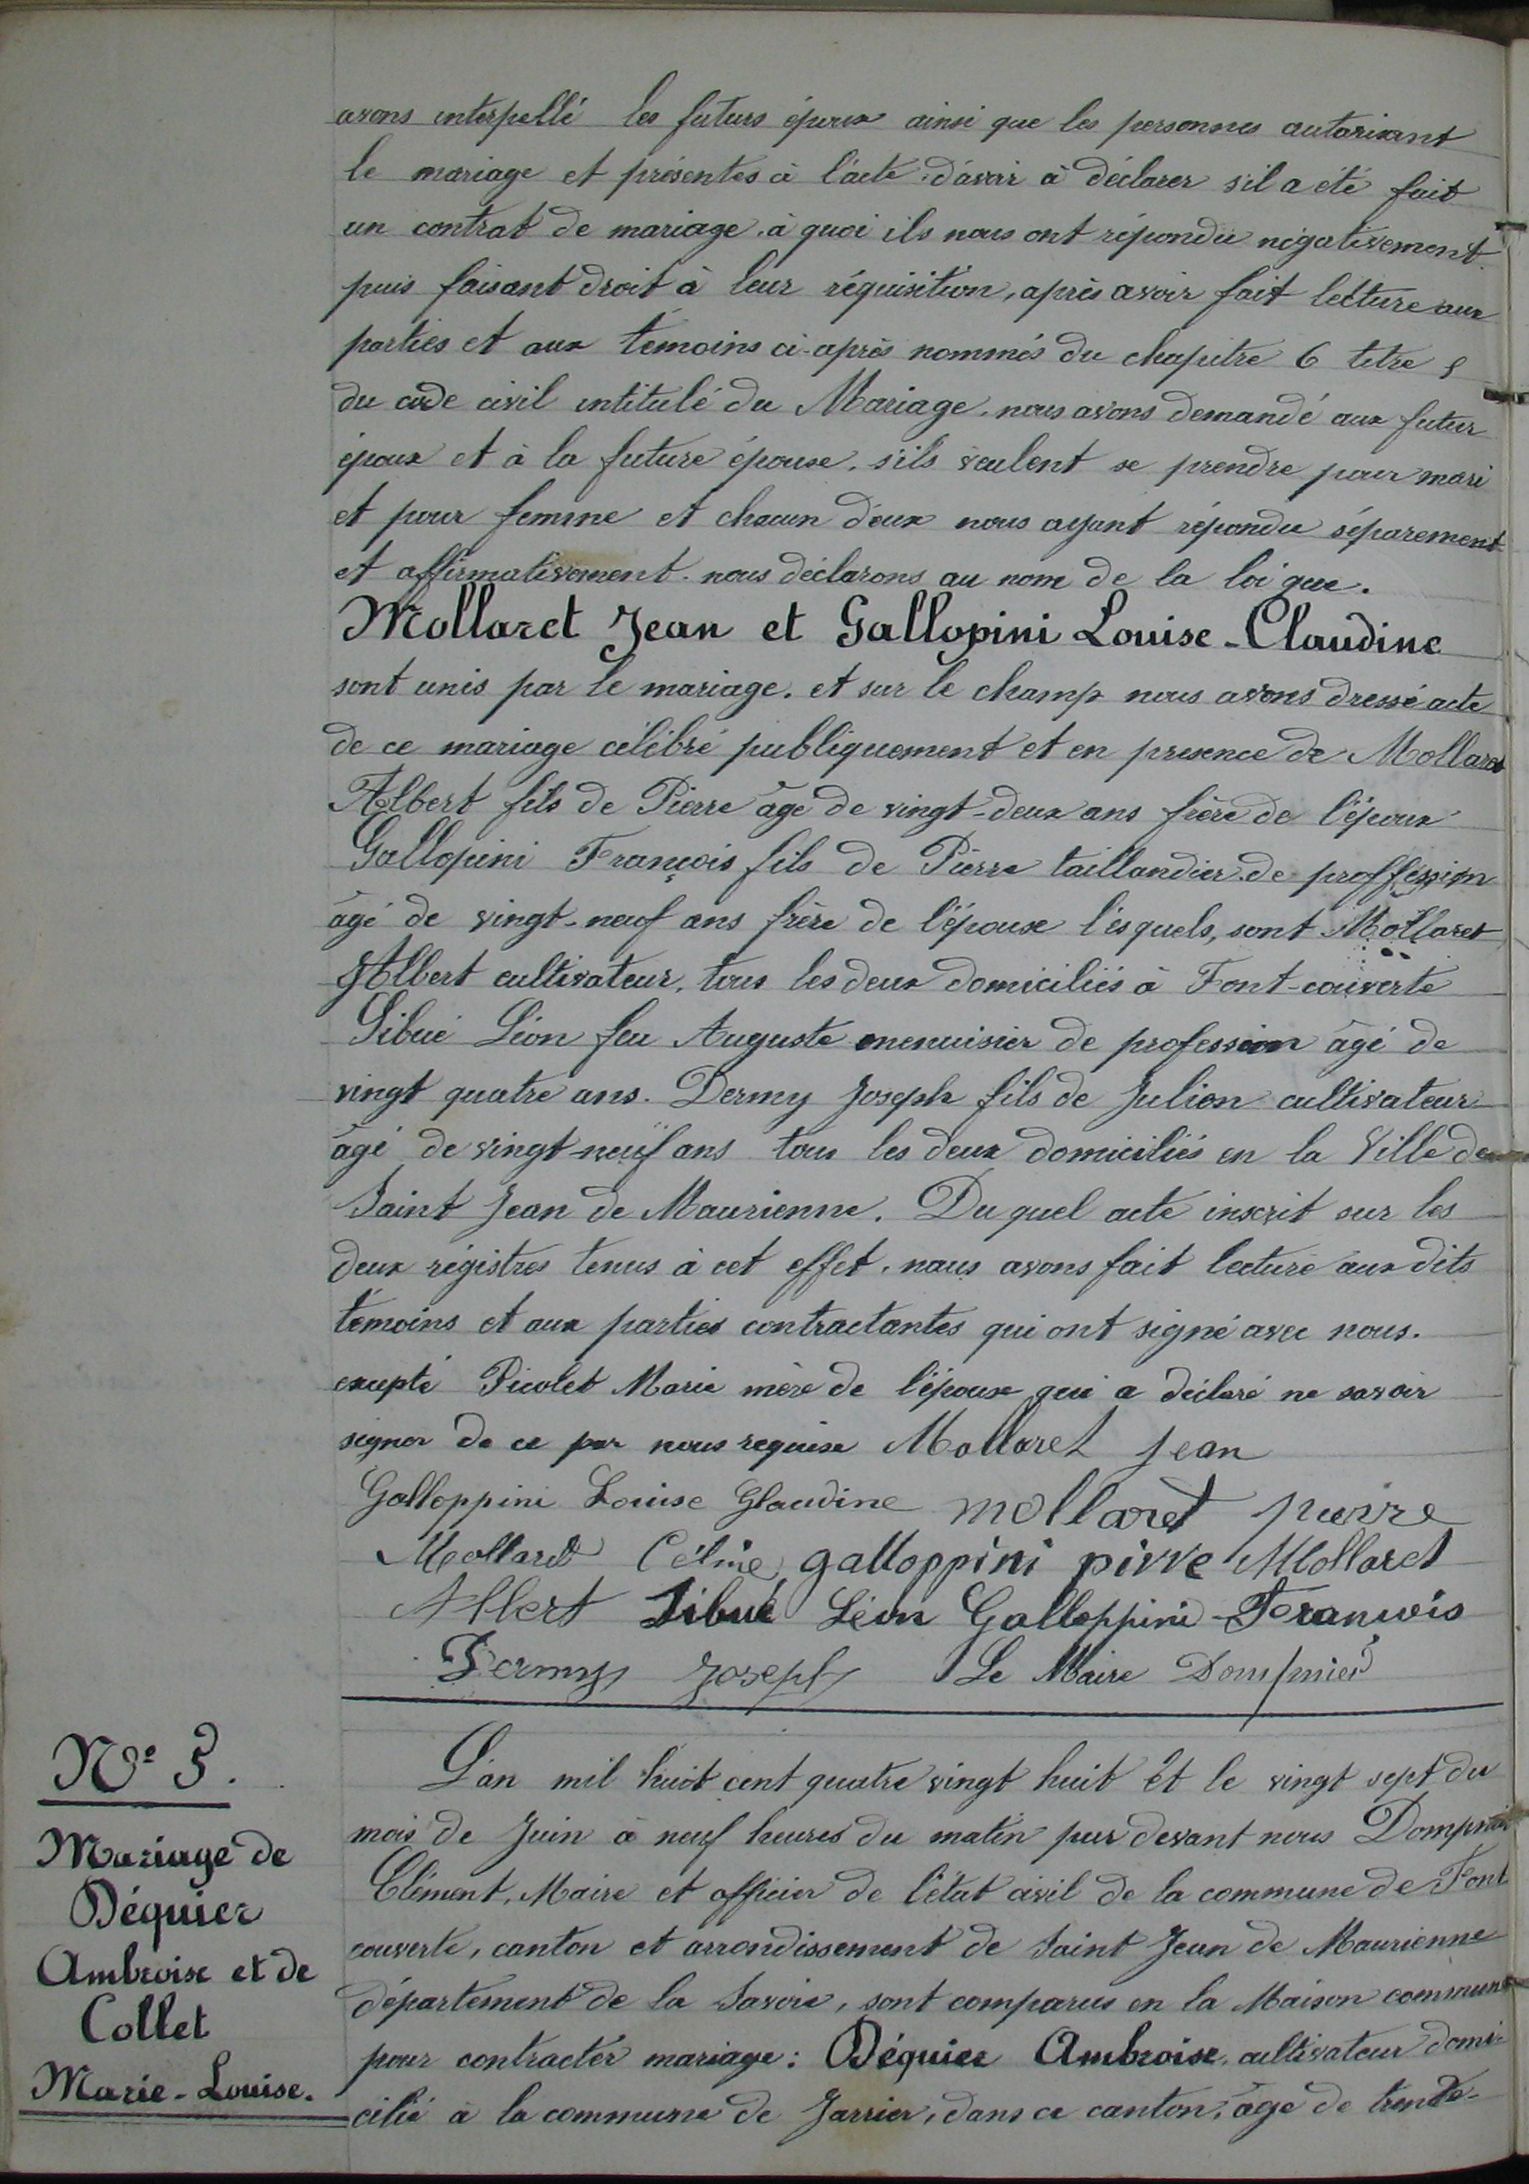 avons interpellé les futurs époux ainsi que les personnes autorisant
le mariage et présentes à l'acte, d'avoir à déclarer s'il a été fait
un contrat de mariage, à quoi ils nous ont répondu négativement
puis faisant droit à leur réquisition, après avoir fait lecture aux
parties et aux témoins ci-après nommés du chapitre 6 titre 5
du code civil intitulé du Mariage, nous avons demandé aux futur
époux et à la future épouse, s'ils veulent se prendre pour mari
et pour femme et chacun d'eux nous ayant répondu séparement
et affirmativement. nous déclarons au nom de la loi que.
Mollaret Jean et Gallopini Louise-Claudine
sont unis par le mariage. et sur le champ nous avons dressé acte
de ce mariage célébré publiquement et en presence de Mollaret
Albert fils de Pierre âgé de vingt-deux ans frère de l'époux
Gallopini François fils de Pierre taillandier de proffession
âgé de vingt-neuf ans frère de l'épouse lesquels, sont Mollaret
Albert cultivateur, tous les deux domiciliés à Font-couverte
Sibué Léon feu Auguste menuisier de profession âgé de
vingt quatre ans. Dermy Joseph fils de Julien cultivateur
âgé de vingt-neuf ans tous les deux domiciliés en la Ville de
Saint Jean de Maurienne. Du quel acte inscrit sur les
deux régistres tenus à cet effet, nous avons fait lecture aux dits
témoins et aux parties contractantes qui ont signé avec nous.
excepté Picolet Marie mère de l'épouse qui a déclaré ne savoir
signer de ce par nous requise Mollaret Jean
Galloppini Louise Glaudine mollaret pierre
Mollaret Céline galloppini pirre Mollaret
Albert Sibué Léon Galloppini François
Dermy Joseph Le Maire Dompnier
N° 5.
Mariage de
Déquier
Ambroise et de
Collet
Marie-Louise.
L'an mil huit cent quatre vingt huit et le vingt sept du
mois de Juin à neuf heures du matin par devant nous Dompnier
Clément, Maire et officier de l'état civil de la commune de Font
couverte, canton et arrondissement de Saint Jean de Maurienne
département de la Savoie, sont comparus en la Maison commune
pour contracter mariage: Déquier Ambroise, cultivateur domi-
cilié à la commune de Jarrier, dans ce canton, âgé de trente-